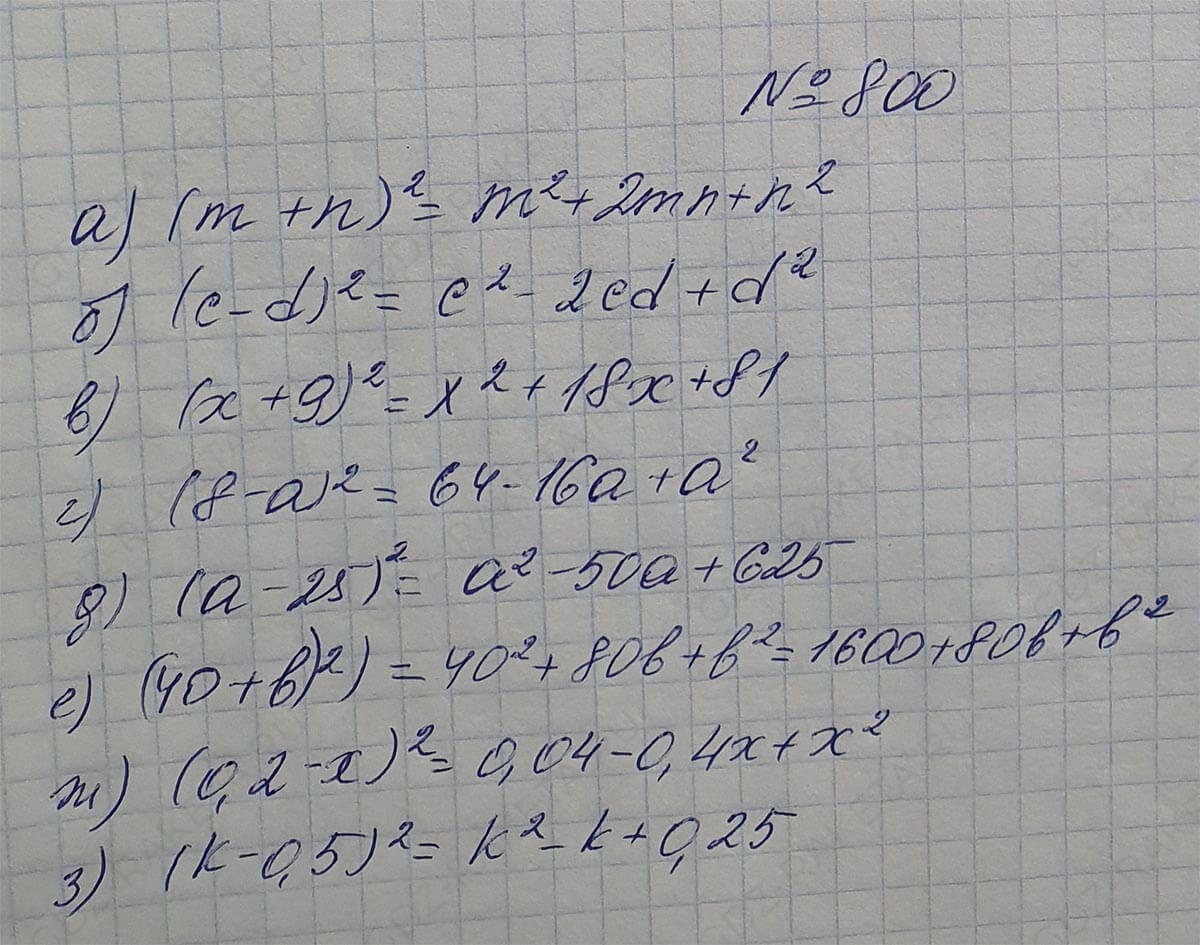 № 800
а) (m + n)² = m² + 2mn + n²
б) (c - d)² = c² - 2cd + d²
в) (x + 9)² = x² + 18x + 81
г) (8 - a)² = 64 - 16a + a²
д) (a - 25)² = a² - 50a + 625
е) (40 + b)²) = 40² + 80b + b² = 1600 + 80b + b²
ж) (0,2 - x)² = 0,04 - 0,4x + x²
з) (k - 0,5)² = k² - k + 0,25